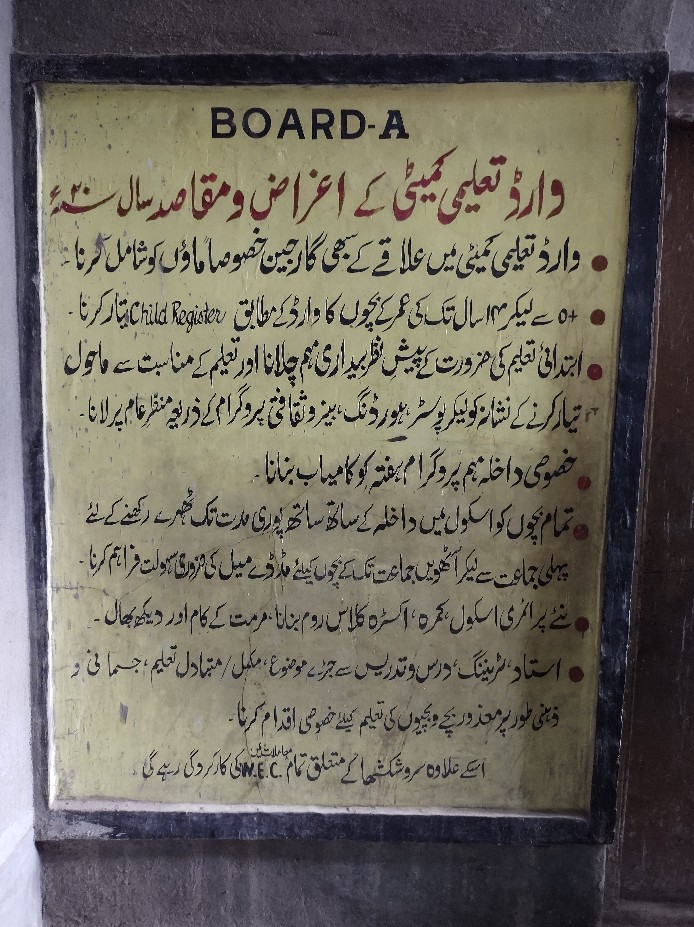 BOARD-A
وارڈ تعلیمی کمیٹی کے اغراض و مقاصد سال ۲۰ء
وارڈ تعلیمی کمیٹی میں علاقے کے سبھی گارجین خصوصاً ماؤں کو شامل کرنا۔
۰+ سے لیکر ۱۴ سال تک کی عمر کے بچوں کا وارڈ کے مطابق Child Register تیار کرنا۔
ابتدائی تعلیم کی ضرورت کے پیش نظر بیداری مہم چلانا اور تعلیم کے مناسبت سے ماحول
تیار کرنے کے نشانز کو لیکر پوسٹر، ہورڈنگ، بینر و ثقافتی پروگرام کے ذریعہ منظر عام پر لانا۔
خصوصی داخلہ مہم پروگرام ہفتہ کو کامیاب بنانا۔
تمام بچوں کو اسکول میں داخلہ کے ساتھ ساتھ پوری مدت تک ٹھہرے رکھنے کے لئے
پہلی جماعت سے لیکر آٹھویں جماعت تک کے بچوں کیلئے مڈ ڈے میل کی ضروری سہولت فراہم کرنا۔
نئے پرائمری اسکول، کمرہ، اکسٹرہ کلاس روم بنانا، مرمت کے کام اور دیکھ بھال۔
استاد، ٹریننگ، درس و تدریس سے جڑے موضوع، مکمل/متبادل تعلیم، جسمانی و
ذہنی طور پر معذور بچے و بچیوں کی تعلیم کیلئے خصوصی اقدام کرنا۔
اسکے علاوہ سروشکشھا کے متعلق تمام معاملات میں W.E.C. کی کارکردگی رہے گی۔